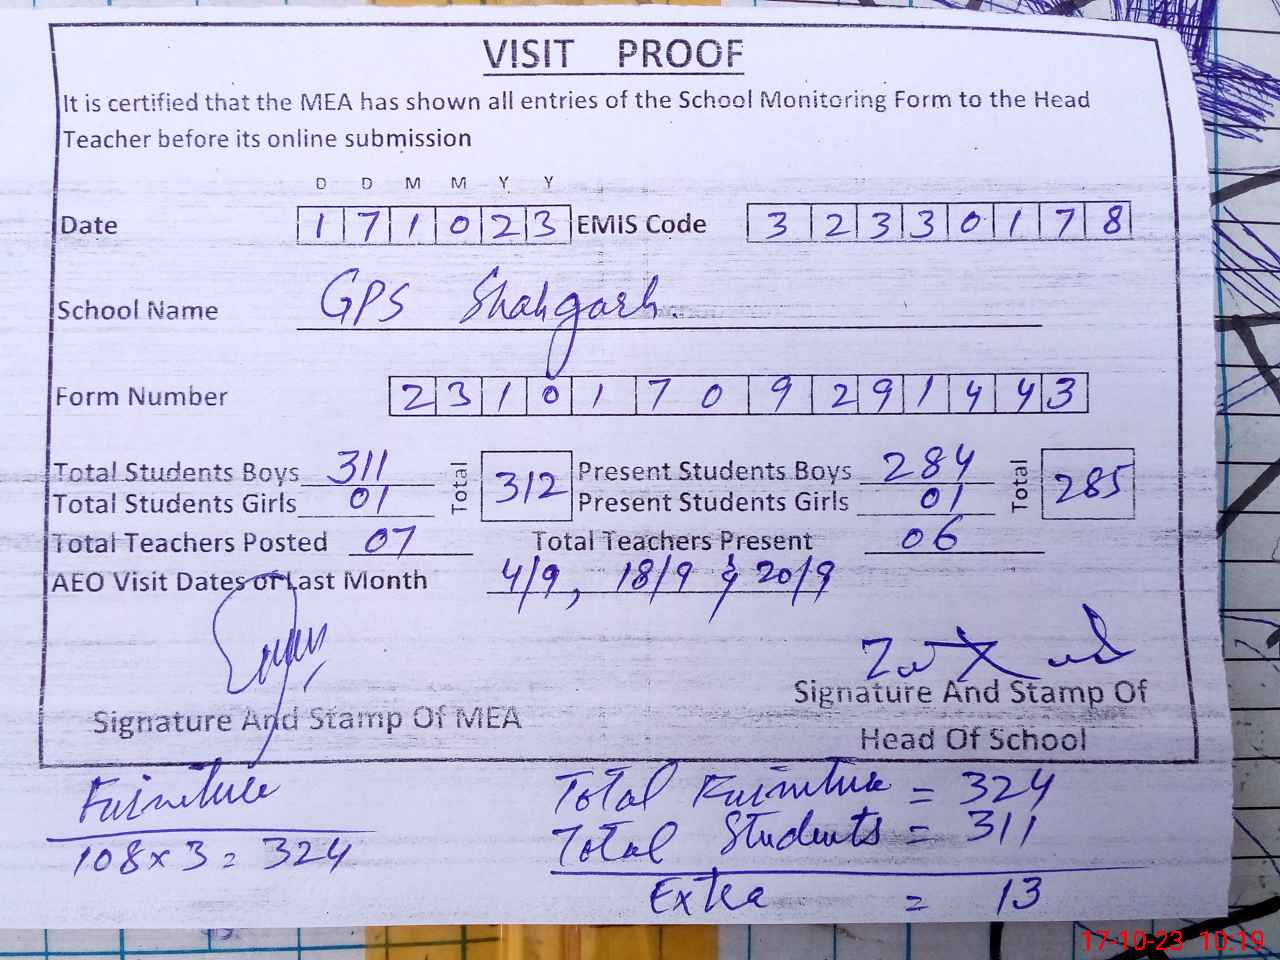 VISIT PROOF
It is certified that the MEA has shown all entries of the School Monitoring Form to the Head
Teacher before its online submission
D D M M Y Y
Date 1 7 1 0 2 3 EMIS Code 3 2 3 3 0 1 7 8
School Name GPS Shahgarh.
Form Number 2 3 1 0 1 7 0 9 2 9 1 4 4 3
Total Students Boys 311 Total 312 Present Students Boys 284 Total 285
Total Students Girls 01 Present Students Girls 01
Total Teachers Posted 07 Total Teachers Present 06
AEO Visit Dates of Last Month 4/9, 18/9 & 20/9
Signature And Stamp Of MEA
Signature And Stamp Of
Head Of School
Furniture
108 x 3 = 324
Total Furniture = 324
Total Students = 311
Extra = 13
17-10-23 10:19